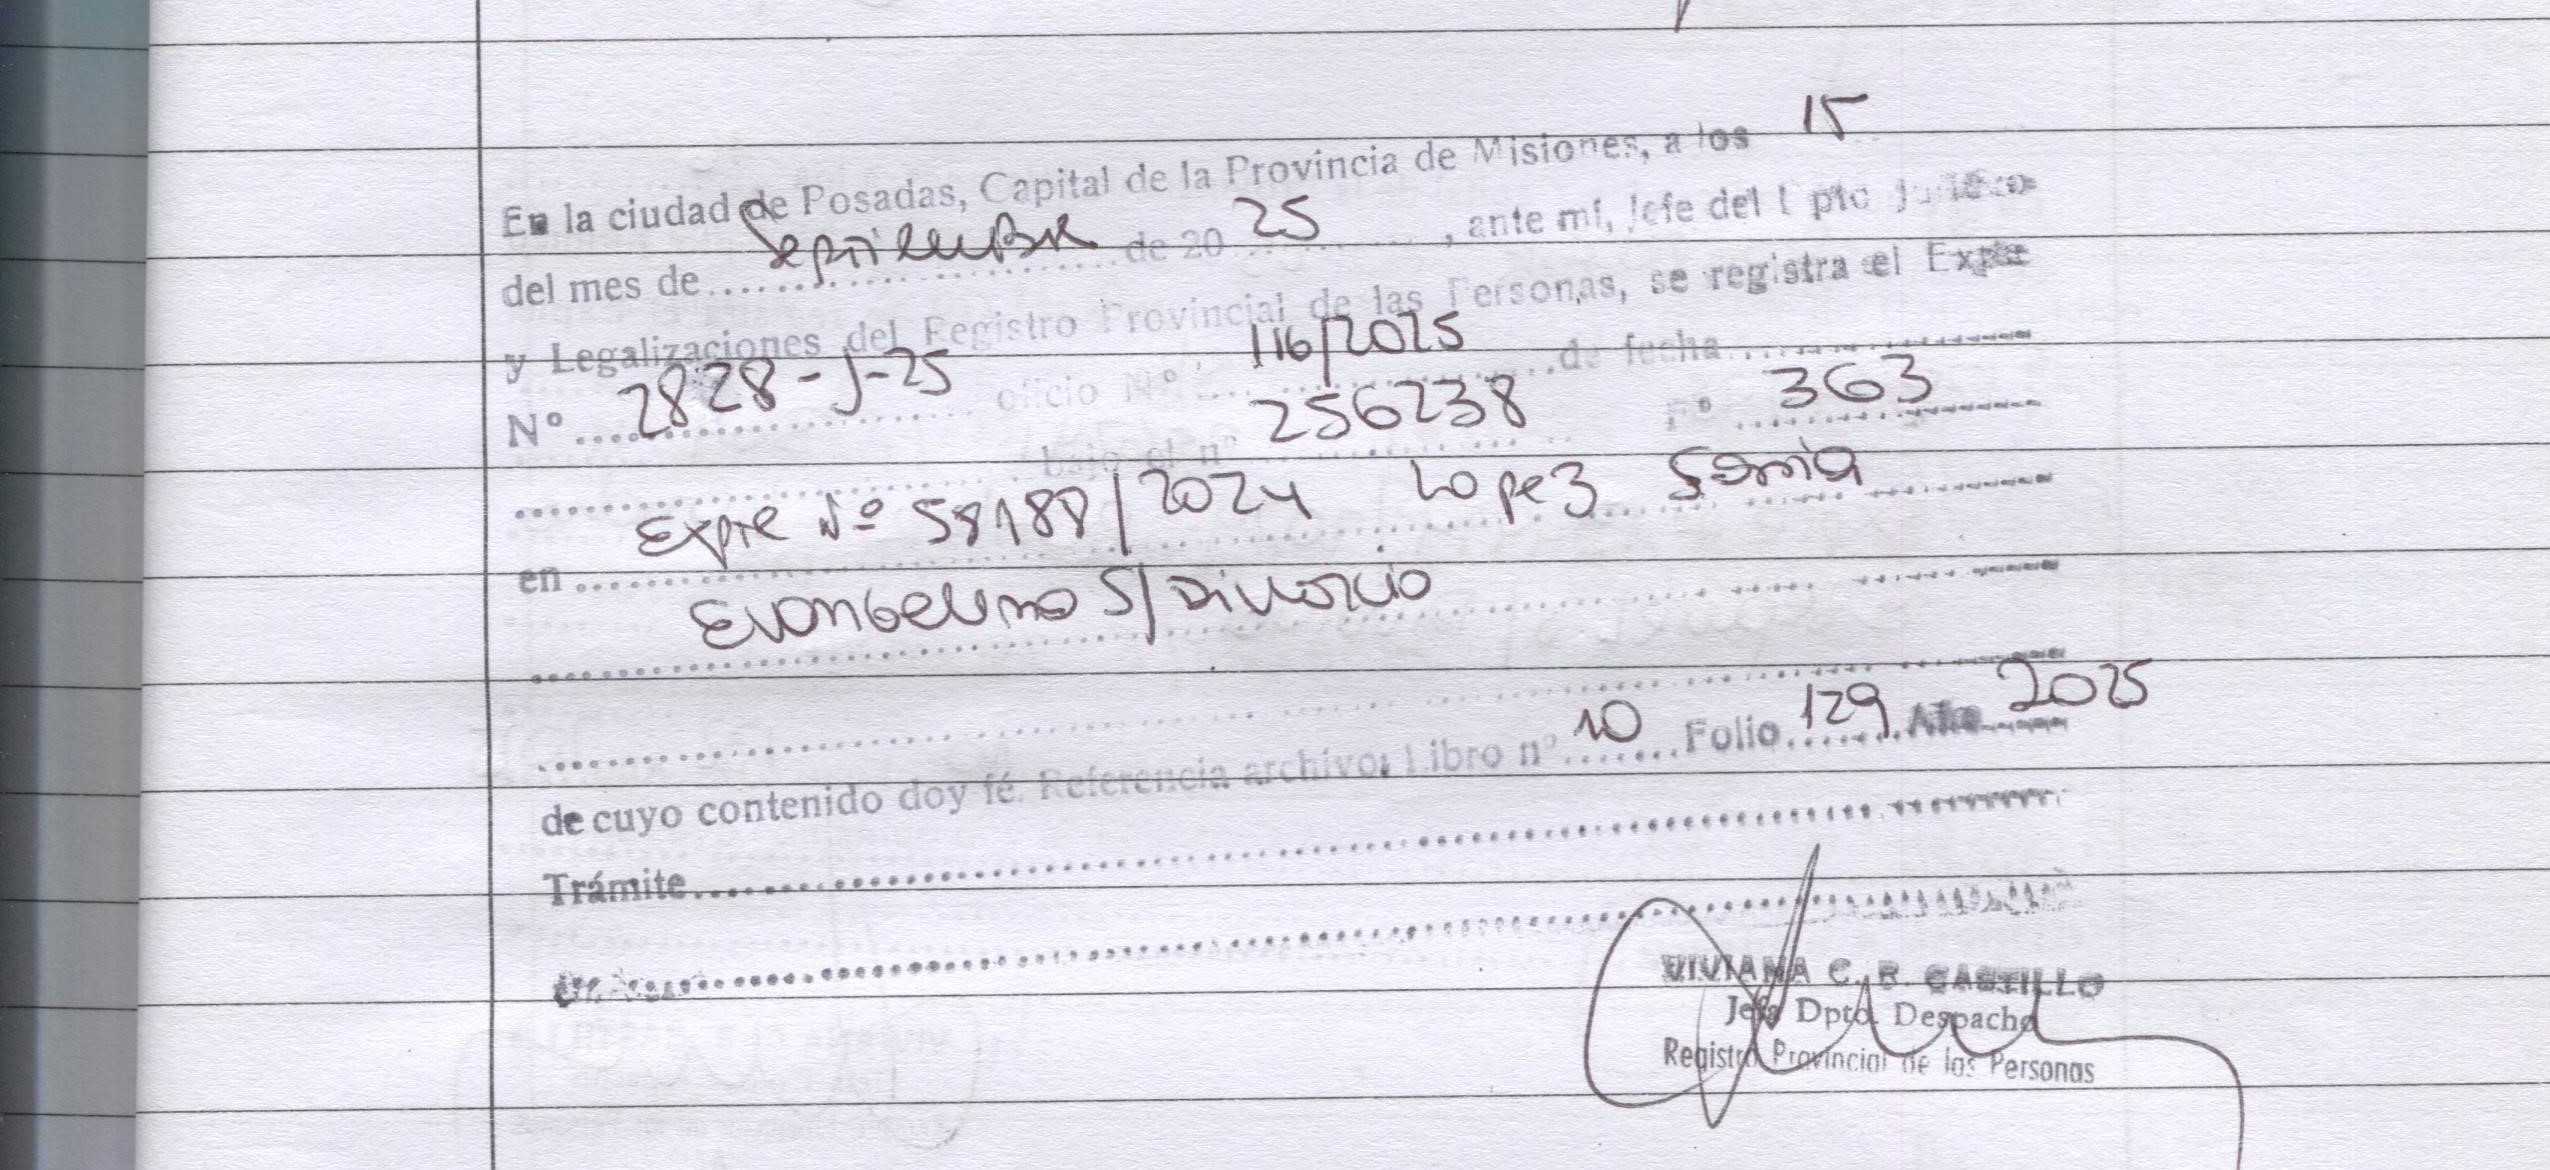 En la ciudad de Posadas, Capital de la Provincia de Misiones, a los 15
del mes de Septiembre de 20 25, ante mí, Jefe del Dpto Jurídico
y Legalizaciones del Registro Provincial de las Personas, se registra el Expte
Nº 2828-J-25 oficio Nº 116/2025 de fecha
bajo el nº 256238 Fº 363
en Expte Nº 58188/2024 Lopez Sonia
Evangelina S/Divorcio
de cuyo contenido doy fé. Referencia archivo: Libro nº 10 Folio 129 Año 2025
Trámite
VIVIANA C. R. CASTILLO
Jefa Dpto. Despacho
Registro Provincial de las Personas